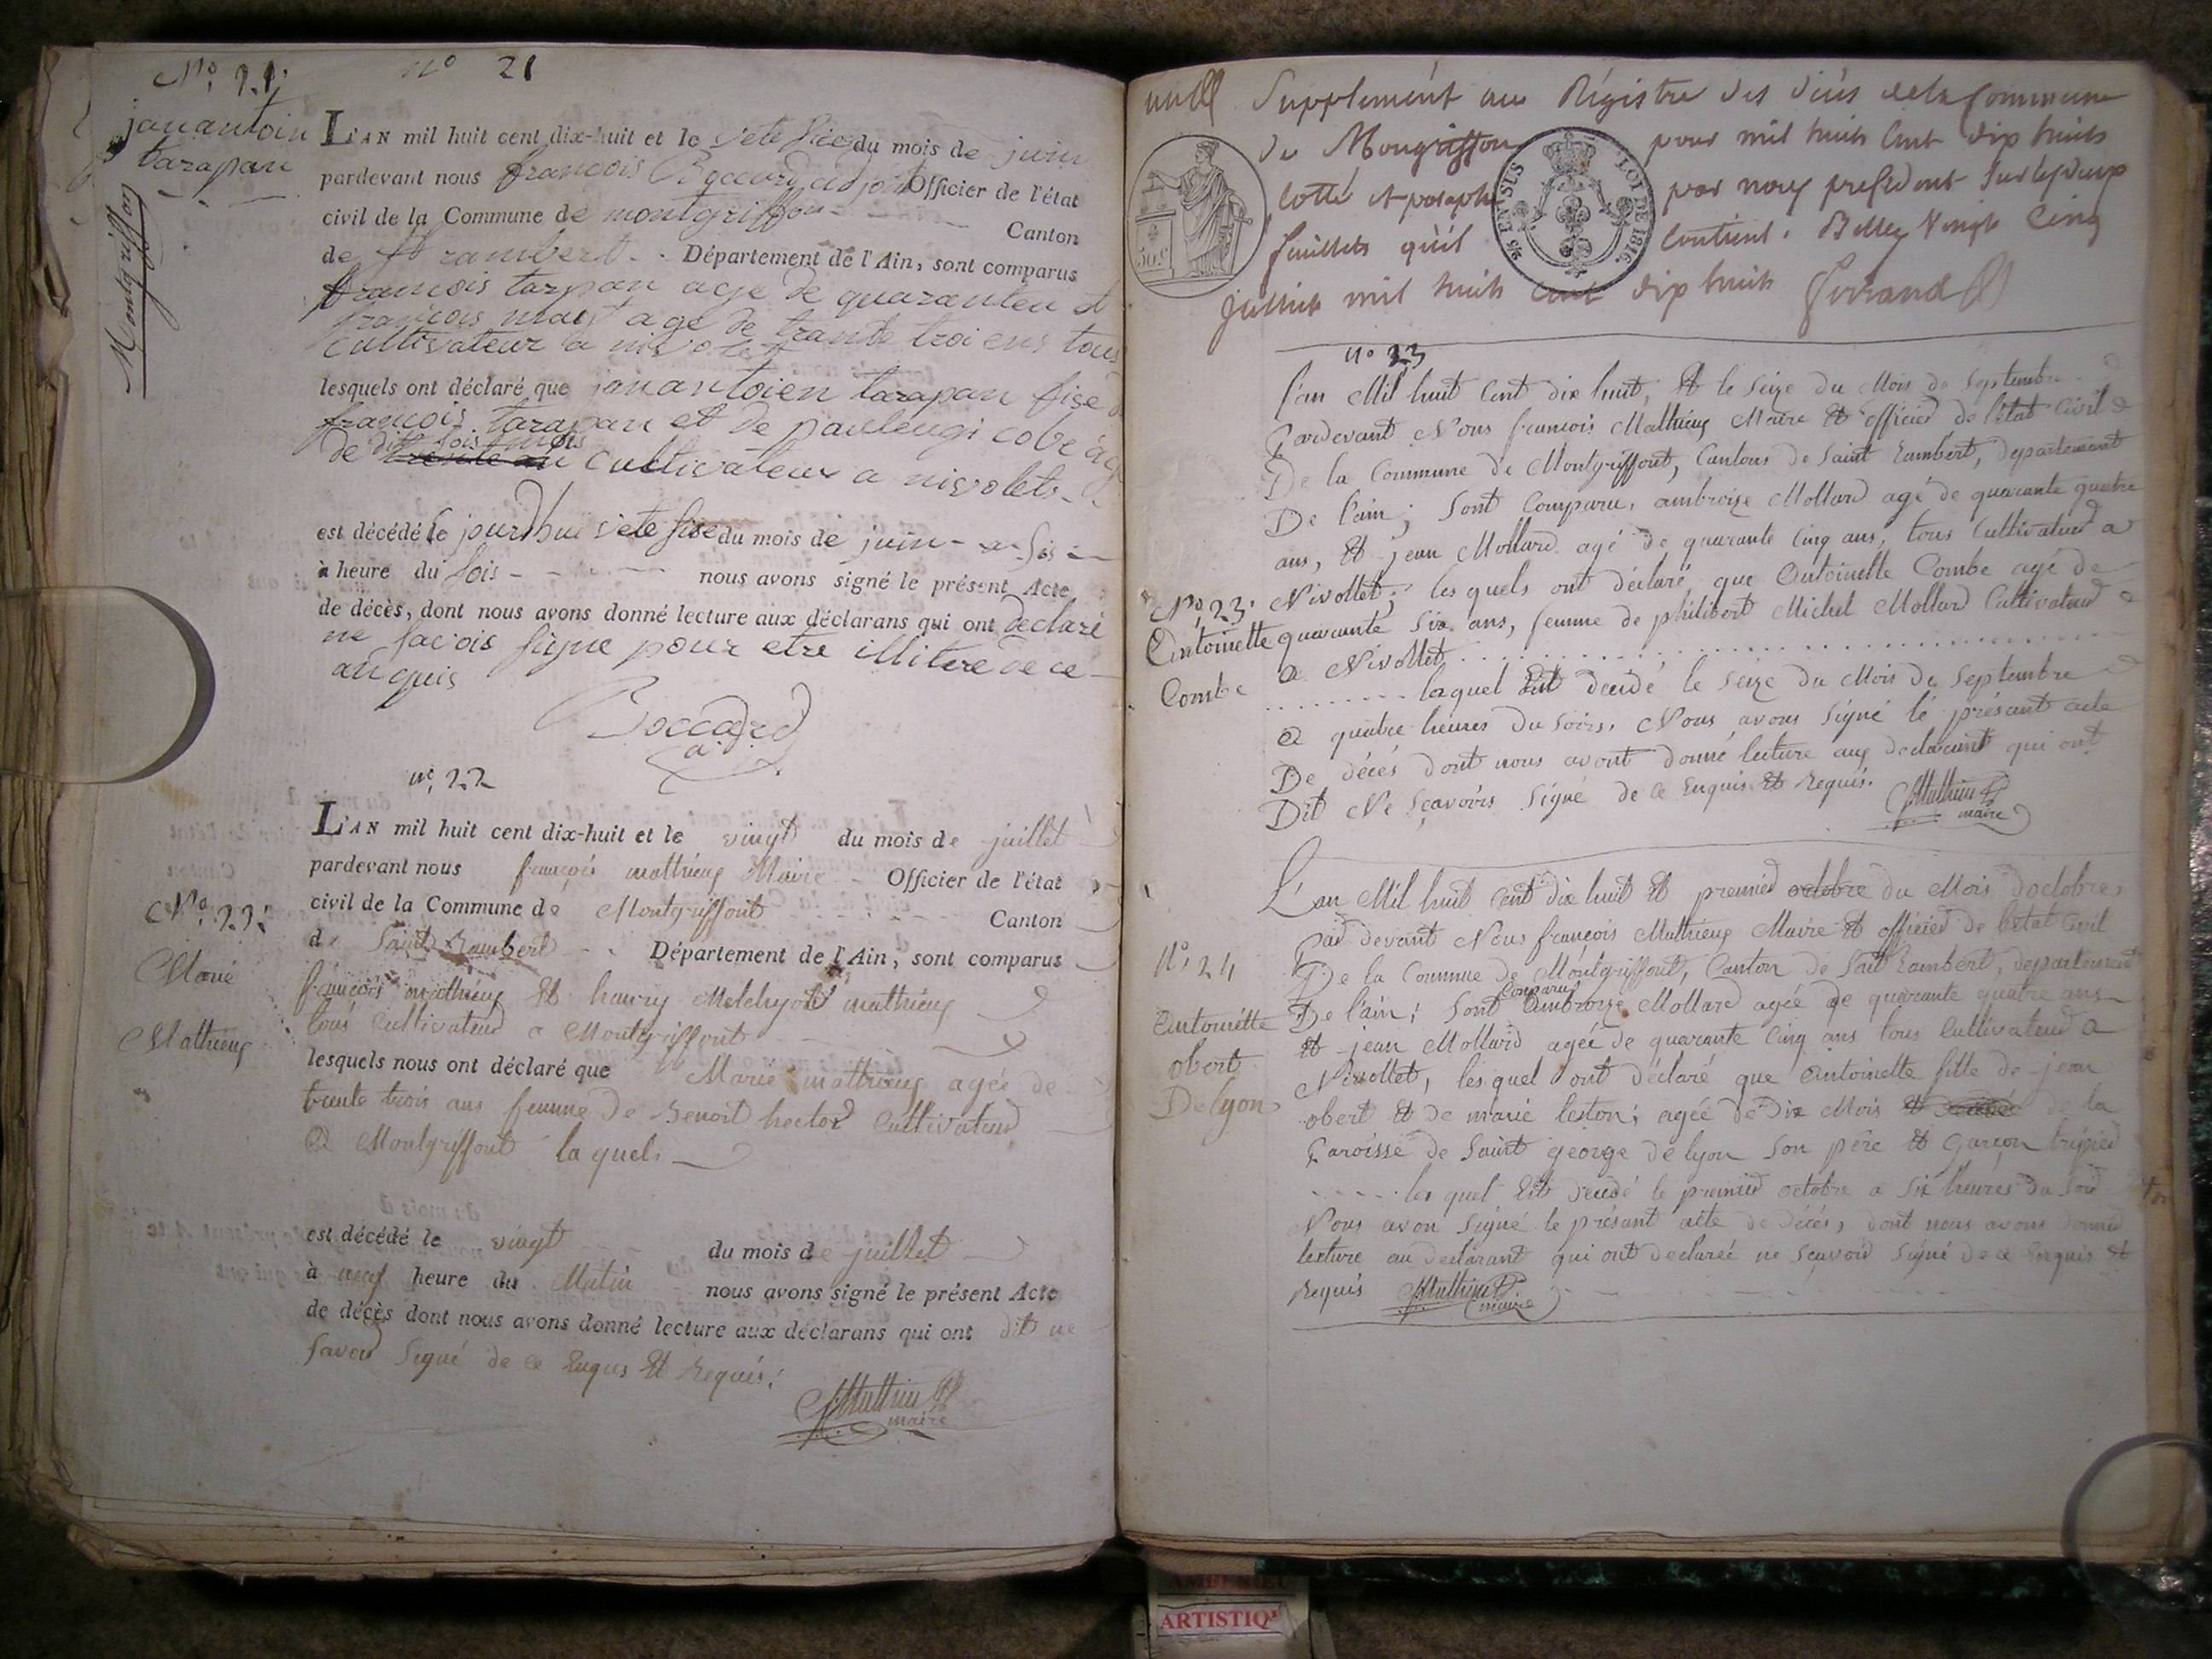 No. 21.
no 21
janantoin
tarapan
Montgriffon
L'AN mil huit cent dix-huit et le vete sice du mois de juin
pardevant nous francois Boccard adjoint Officier de l'état
civil de la Commune de montgriffon Canton
de St rambert Département de l'Ain, sont comparus
francois tarpan age de quaranteu et
francois age de trante troi ens tous
cultivateur a nivolet
lesquels ont déclaré que janantoien tarapan fise de
francois tarapan et de
de dit sois mois cultivateur a nivolets
est décédé le jourdhui vete sise du mois de juin a sis
à heure du sois nous avons signé le présent Acte
de décès, dont nous avons donné lecture aux déclarans qui ont declaré
ne sacois signe pour etre illitere de ce
anquis
Boccard
a
no. 22
L'AN mil huit cent dix-huit et le vingt du mois de juillet
pardevant nous françois mathieux Maire Officier de l'état
civil de la Commune de Montgriffont Canton
de Saint Rambert Département de l'Ain, sont comparus
No. 22.
Marie
Mathieux
françois mathieux Et henry Melchyor mathieux
tous Cultivateurd a Montgriffont
lesquels nous ont déclaré que Marie mathieux agée de
trente trois ans femme de Benoit hector Cultivateur
a Montgriffont laquels
est décédé le vingt du mois de juillet
à neuf heure du Matin nous avons signé le présent Acte
de décès dont nous avons donné lecture aux déclarans qui ont dit ne
saver Signé de ce Enquis Et Requis.
Mathieu
maire
Supplément au Régistre des décès de la Commune
de Mongriffon pour mil huit Cent dix huit
Cotté et paraphé par nous président sur les deux
feuillets qu'il Contient. Belley Vingt Cinq
juillet mil huit Cent dix huit Ferrand
50.c
LOI DE 1816.
EN SUS
no 23
L'an Mil huit Cent dix huit, Et le Seize du Mois de Septembre
Pardevant Nous francois Mathieux Maire Et officier de l'état Civil
De la Commune de Montgriffont, Cantons de Saint Rambert, departement
De l'ain; Sont Comparu, ambroize Mollard agé de quarante quatre
ans, Et jean Mollard agé de quarante Cinq ans, tous Cultivateurd a
Nivollet; les quels ont déclaré que Antoinette Combe agé de
No. 23.
Antoinette
Combe
quarante Six ans, femme de philibert Michel Mollard Cultivateurd
a Nivollet
laquel Est décédé le Seize du Mois de Septembre
a quatre heures du Soirs, Nous avons Signé le présant acte
De décés dont nous avont donné lecture aux declarant qui ont
Dit Ne Sçavoirs Signé de ce Enquis Et Requis.
Mathieu
maire
L'an Mil huit Cent dix huit Et premied octobre du Mois doctobre,
Par devant Nous françois Mathieux Maire Et officier de letat Civil
De la Commune de Montgriffont, Canton de Saint Rambert, departement
De l'ain; Sont Comparus Ambroize Mollard agée de quarante quatre ans
Et jean Mollard agée de quarante Cinq ans tous Cultivateurd a
No. 24
Antoinette
obert
De lyon
Nivollet, lesquel ont déclaré que Antoinette fille de jean
obert Et de marie leston; agée de dix Mois de la
Paroisse de Saint george de lyon Son père Et Garçon
les quel Est décédé le premied octobre a Six heures du Soir
Nous avon Signé le présant acte de décés, dont nous avons donné
lecture au declarant qui ont declareé ne Sçavoir Signé de ce Enquis Et
Requis Mathieu
maire
ARTISTIQ